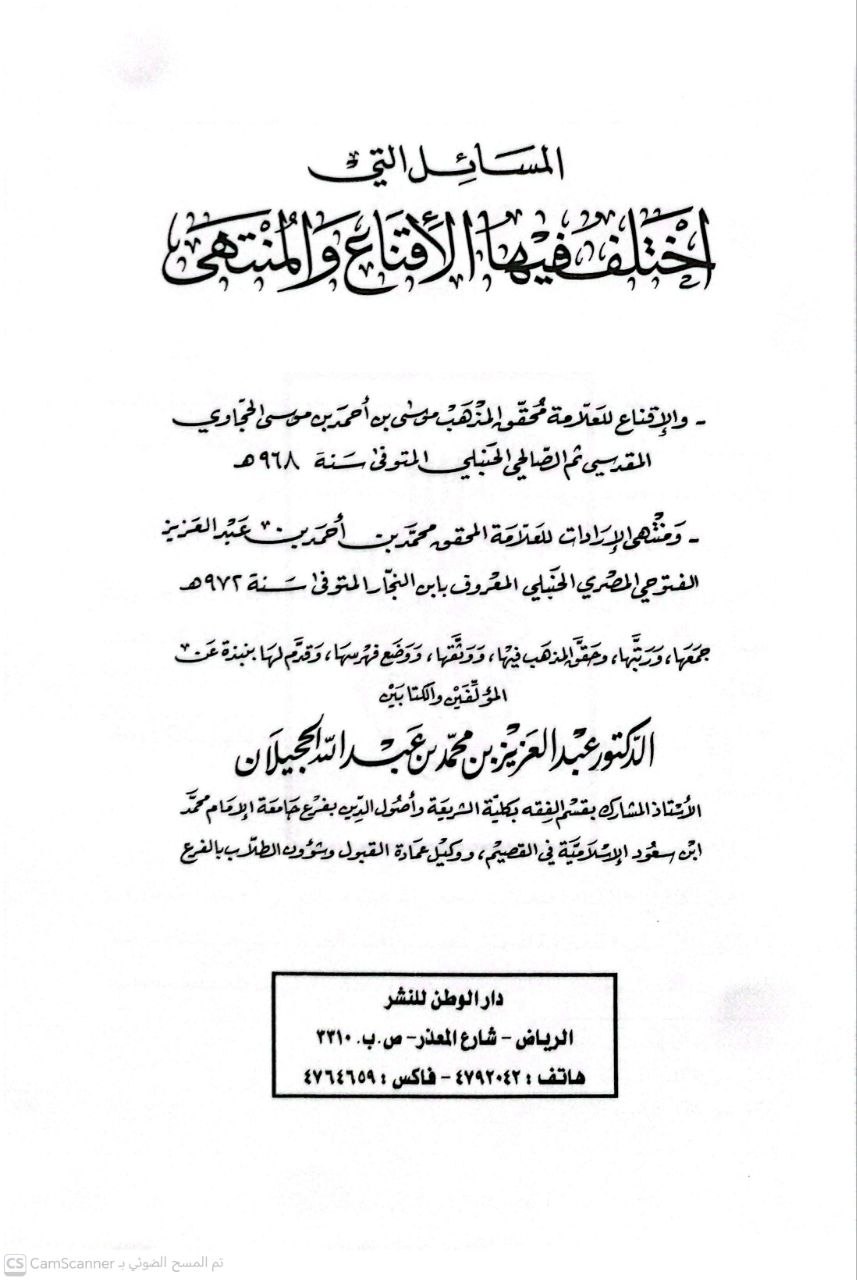 المسائل التي
اختلف فيها الإقناع والمنتهى
- والإقناع للعلامة محقق المذهب موسى بن أحمد بن موسى الحجاوي
المقدسي ثم الصالحي الحنبلي المتوفى سنة ٩٦٨ هـ
- ومنتهى الإرادات للعلامة المحقق محمد بن أحمد بن عبد العزيز
الفتوحي المصري الحنبلي المعروف بابن النجار المتوفى سنة ٩٧٢ هـ
جمعها، ورتبها، وحقق المذهب فيها، ووثقها، ووضع فهرسها، وقدم لها بنبذة عن
المؤلفين والكتابين
الدكتور عبد العزيز بن محمد بن عبد الله الحجيلان
الأستاذ المشارك بقسم الفقه بكلية الشريعة وأصول الدين بفرع جامعة الإمام محمد
ابن سعود الإسلامية في القصيم، ووكيل عمادة القبول وشؤون الطلاب بالفرع
دار الوطن للنشر
الرياض - شارع المعذر - ص. ب. ٣٣١٠
هاتف : ٤٧٩٢٠٤٢ - فاكس : ٤٧٦٤٦٥٩
CS CamScanner تم المسح الضوئي بـ